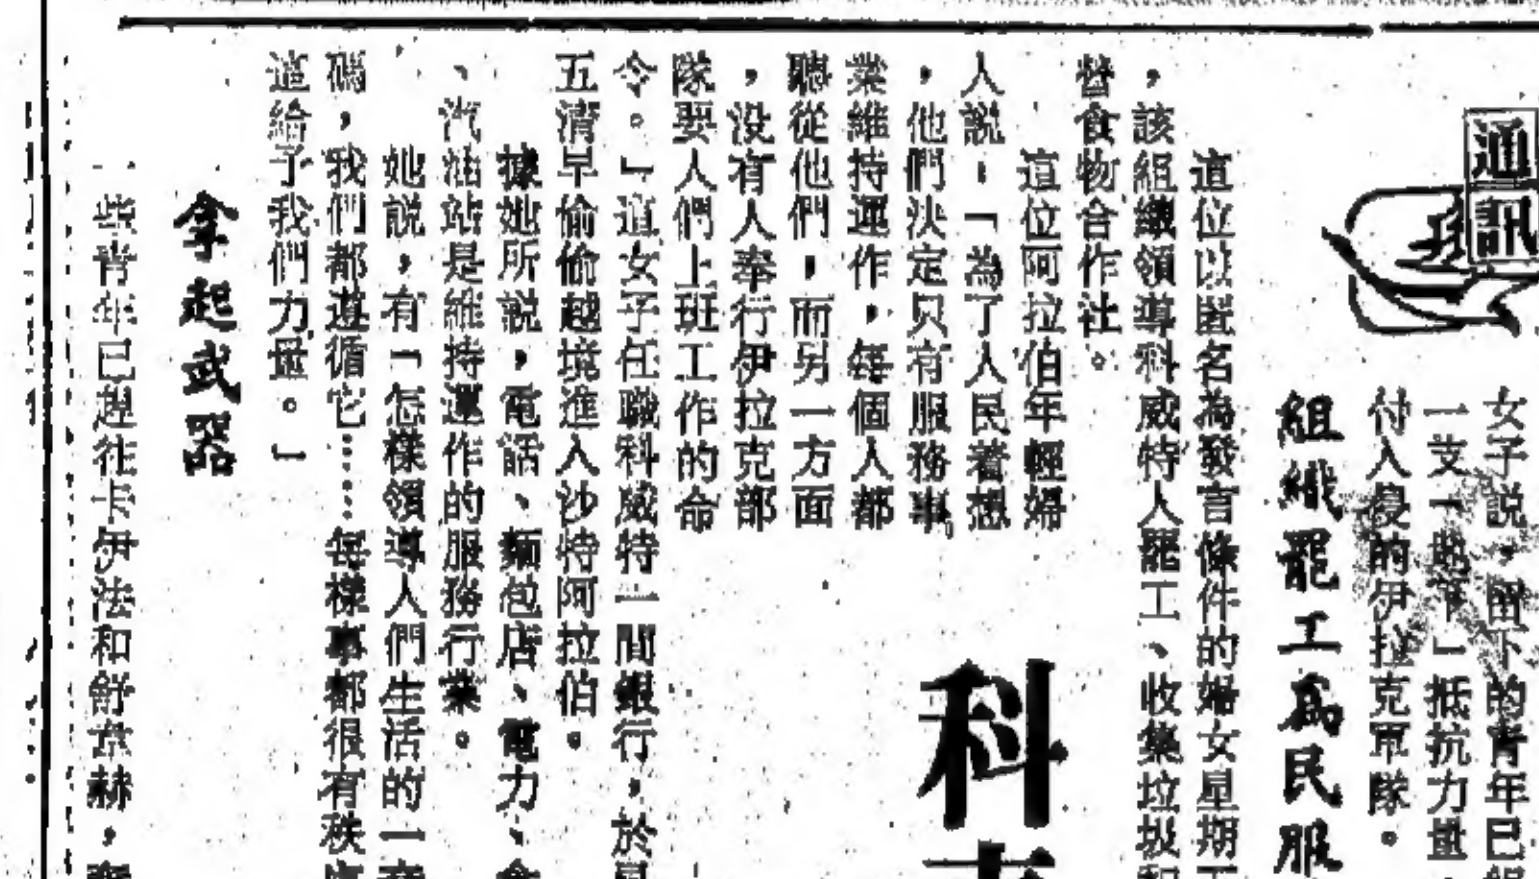 通訊
女子説，留下的青年已組
一支「地下」抵抗力量，
付入侵的伊拉克軍隊。
組織罷工爲民服
這位以匿名為發言條件的婦女星期
，該組織領導科威特人罷工、收集垃圾和
營食物合作社。
這位阿拉伯年輕婦
人説：「為了人民着想
，他們決定只有服務事
業維持運作，每個人都
聽從他們，而另一方面
，没有人奉行伊拉克部
隊要人們上班工作的命
令。」這女子任職科威特一間銀行，於星
五清早偷偷越境進入沙特阿拉伯。
據她所説，電話、麵包店、電力、食
、汽油站是維持運作的服務行業。
她説，有「怎樣領導人們生活的一套
碼，我們都遵循它……每樣事都很有秩序
這給予我們力量。」
拿起武器
一些青年已趕往卡伊法和舒章赫，
科